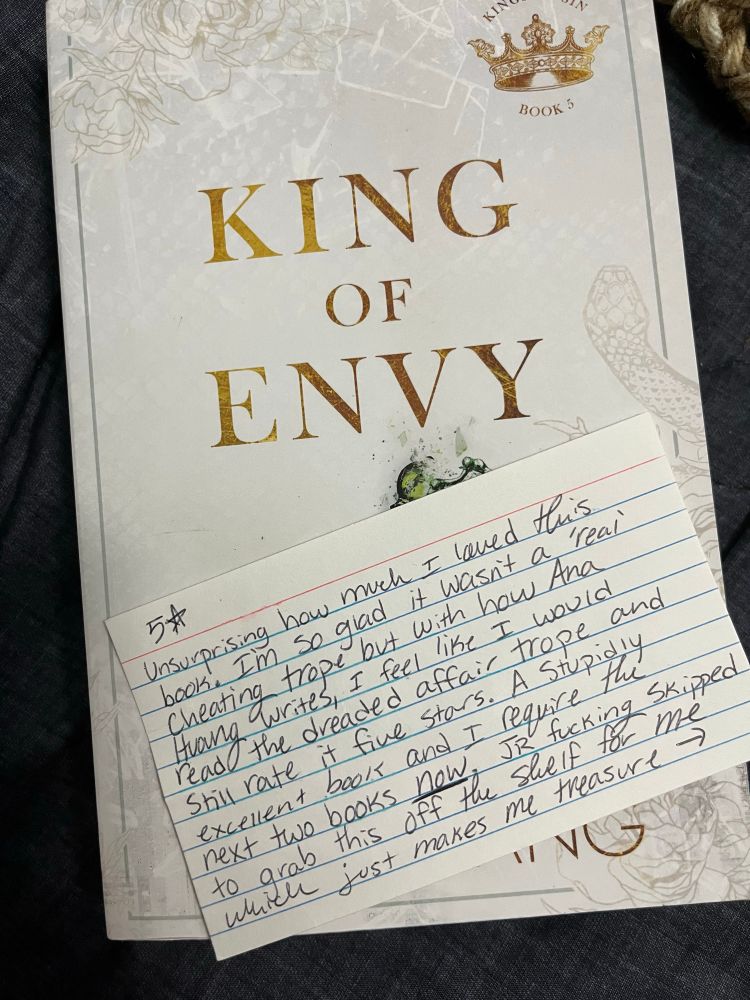 KINGS SIN
BOOK 5
KING
OF
ENVY
5☆
Unsurprising how much I loved this
book. I'm so glad it wasn't a 'real'
cheating trope but with how Ana
Huang writes, I feel like I would
read the dreaded affair trope and
still rate it five stars. A stupidly
excellent book and I require the
next two books now. JR fucking skipped
to grab this off the shelf for me
which just makes me treasure →
ANG